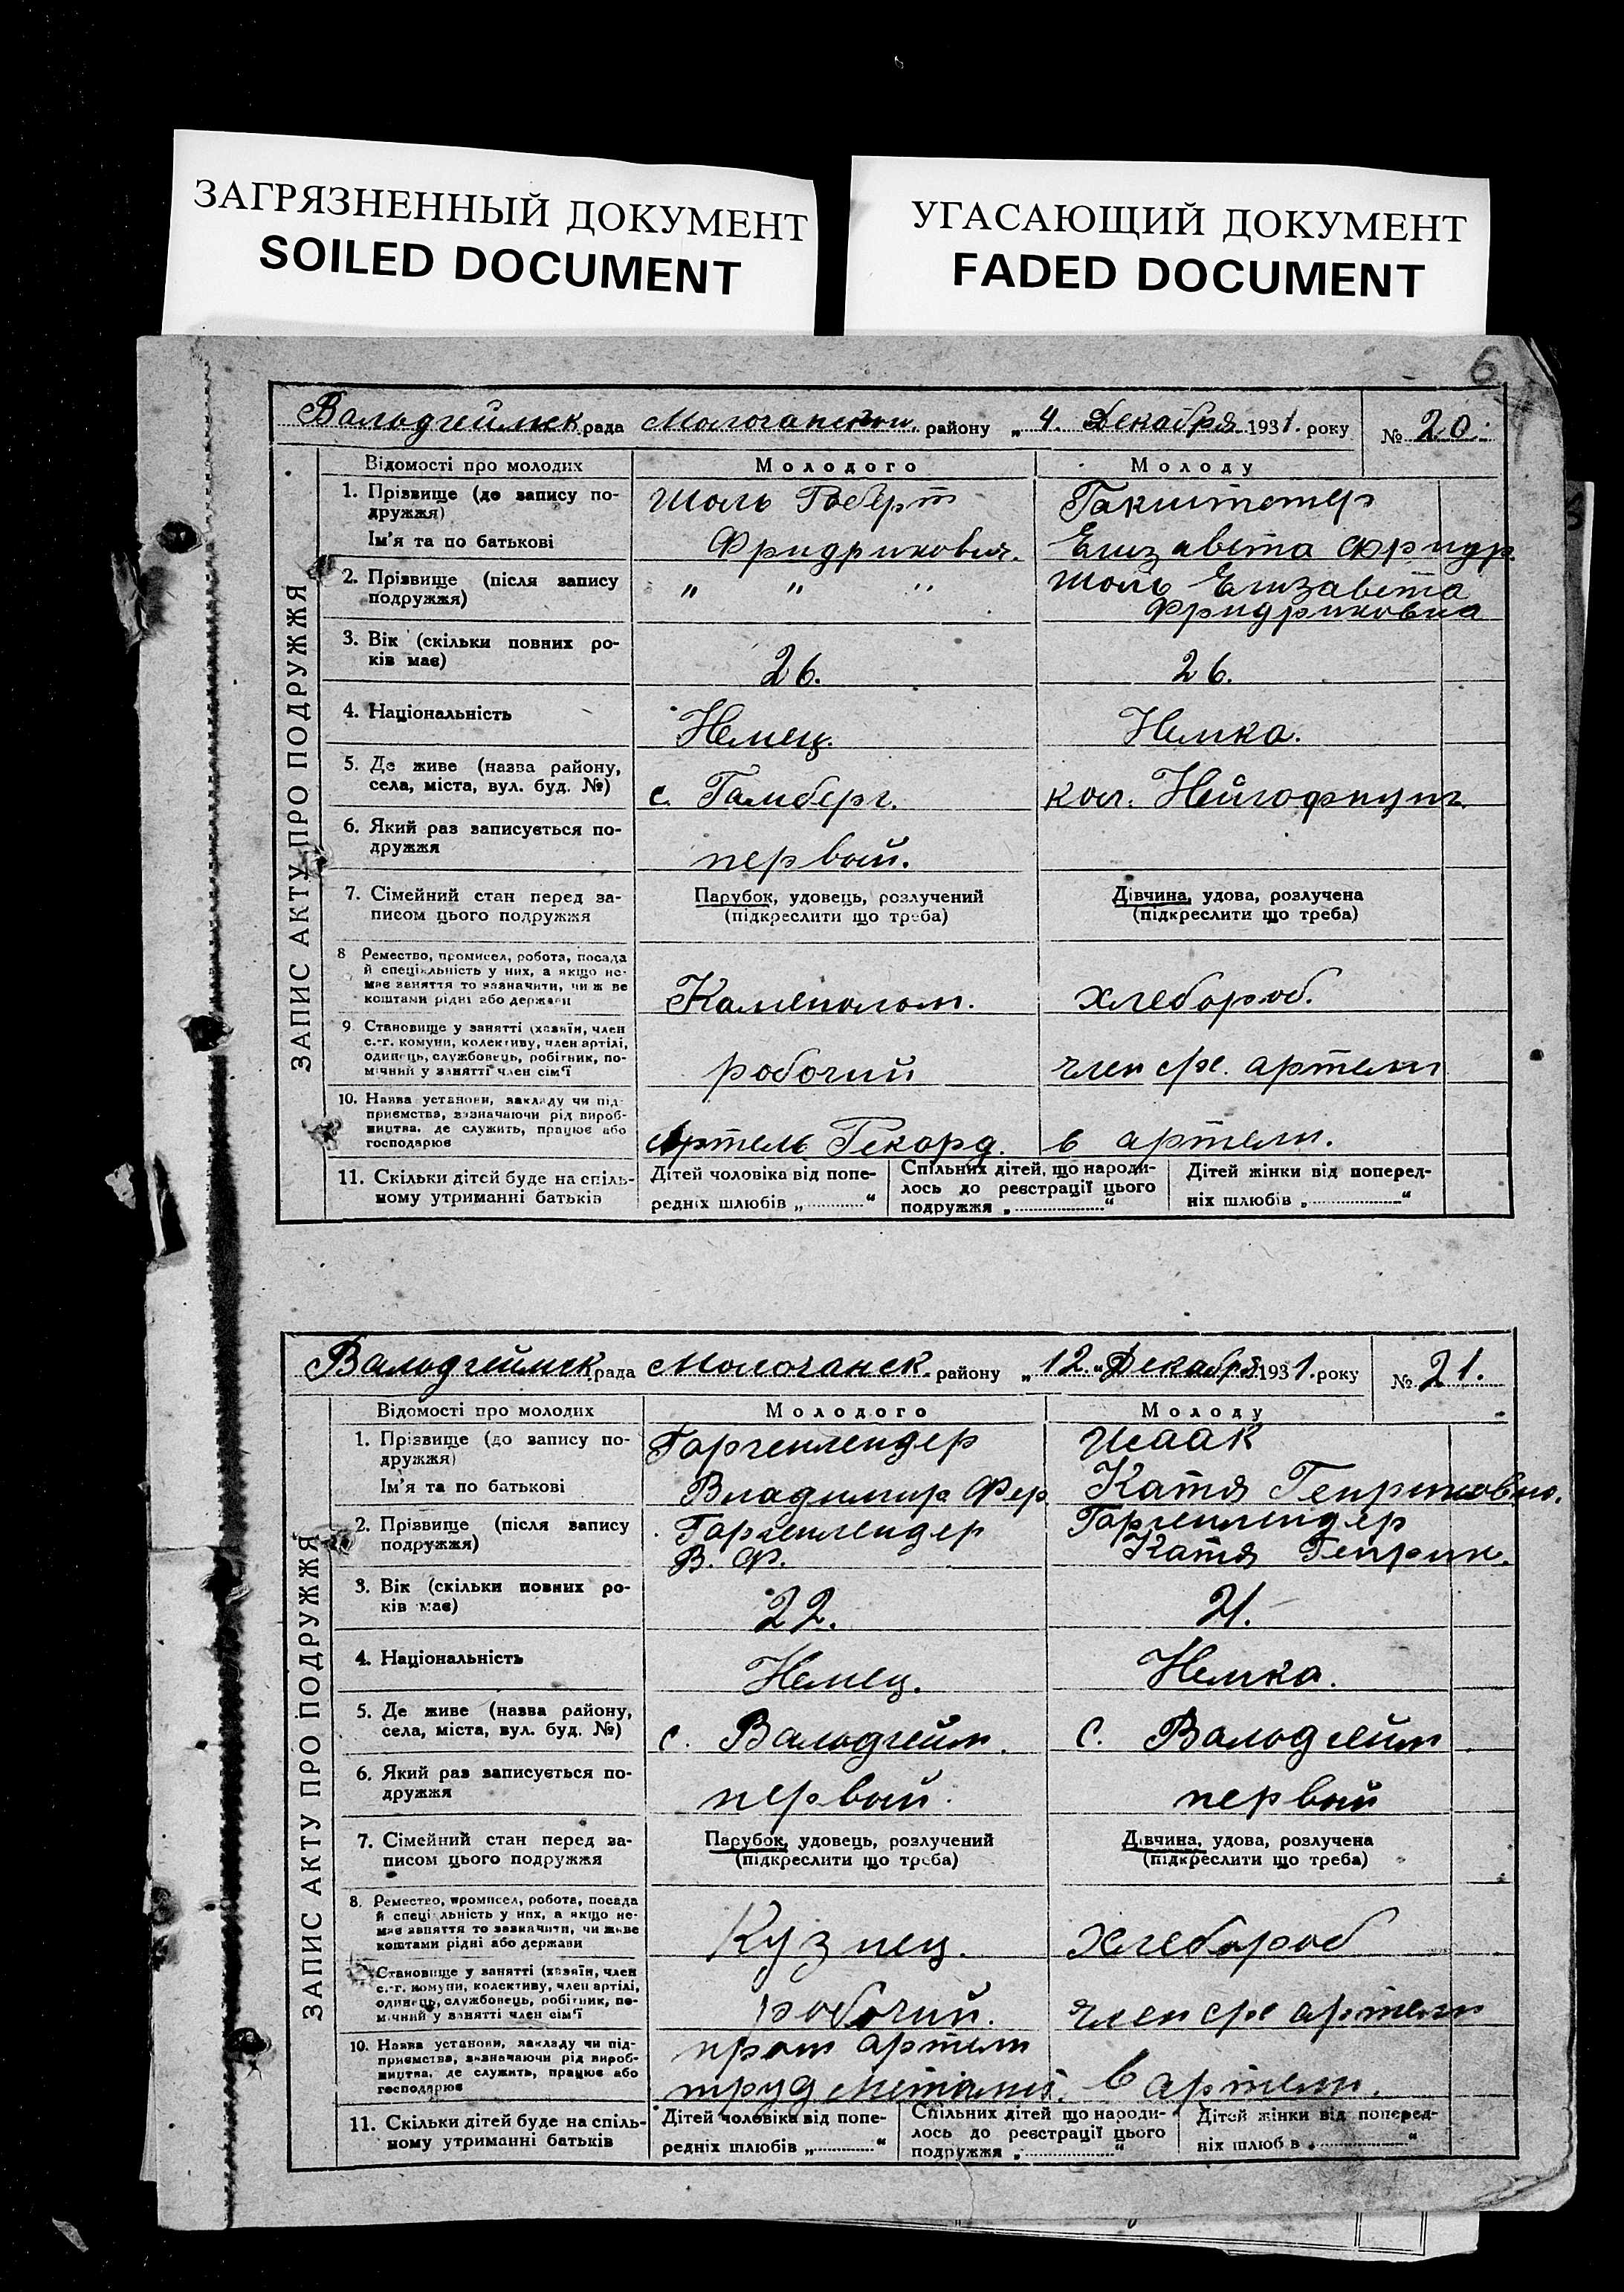 ЗАГРЯЗНЕННЫЙ ДОКУМЕНТ
SOILED DOCUMENT
УГАСАЮЩИЙ ДОКУМЕНТ
FADED DOCUMENT
6
Вальдгеймск рада Молочанского району „4. Декабря 1931. року № 20.
ЗАПИС АКТУ ПРО ПОДРУЖЖЯ
Відомості про молодих Молодого Молоду
1. Прізвище (до запису по-
дружжя)
Ім'я та по батькові
Шоль Роберт
Фридрихович.
Елизавета Фридр.
2. Прізвище (після запису
подружжя)
" " "
Шоль Елизавета
Фридриховна
3. Вік (скільки повних ро-
ків має)
26. 26.
4. Національність
Немец. Немка.
5. Де живе (назва району,
села, міста, вул. буд. №)
с. Гамберг. кол.
6. Який раз записується по-
дружжя
первый.
7. Сімейний стан перед за-
писом цього подружжя
Парубок, удовець, розлучений
(підкреслити що треба)
Дівчина, удова, розлучена
(підкреслити що треба)
8 Ремество, промисел, робота, посада
й спеціяльність у них, а якщо не-
має заняття то зазначити, чи ж ве
коштами рідні або держави
Каменолом. хлебороб.
9 Становище у занятті (хазяїн, член
с.-г. комуни, колективу, член артілі,
одинець, службовець, робітник, по-
мічний у занятті член сім'ї
робочий член с/х. артели
10. Назва установи, закладу чи під-
приємства, зазначаючи рід вироб-
ництва, де служить, працює або
господарює
Артель Рекорд. в артели.
11. Скільки дітей буде на спіль-
ному утриманні батьків
Дітей чоловіка від попе-
редніх шлюбів „............“
Спільних дітей, що народи-
лось до реєстрації цього
подружжя „..................“
Дітей жінки від поперед-
ніх шлюбів „..................“
Вальдгеймск рада Молочанск. району „12. „Декабря 1931. року № 21.
ЗАПИС АКТУ ПРО ПОДРУЖЖЯ
Відомості про молодих Молодого Молоду
1. Прізвище (до запису по-
дружжя)
Ім'я та по батькові
Горгенлендер
Владимир Фер
Исаак
Катя Генриховна.
2. Прізвище (після запису
подружжя)
Горгенлендер
В. Ф.
Горгенлендер
Катя Генрих.
3. Вік (скільки повних ро-
ків має)
22. 21.
4. Національність
Немец. Немка.
5. Де живе (назва району,
села, міста, вул. буд. №)
с. Вальдгейм. с. Вальдгейм
6. Який раз записується по-
дружжя
первый. первый
7. Сімейний стан перед за-
писом цього подружжя
Парубок, удовець, розлучений
(підкреслити що треба)
Дівчина, удова, розлучена
(підкреслити що треба)
8. Ремество, промисел, робота, посада
й спеціяльність у них, а якщо не-
має заняття то зазначити, чи живе
коштами рідні або держави
Кузнец. хлебороб
Становище у занятті (хазяїн, член
с.-г. комуни, колективу, член артілі,
одинець, службовець, робітник, по-
мічний у занятті член сім'ї
робочий. член с/х артели
10. Назва установи, закладу чи під-
приємства, зазначаючи рід вироб-
ництва, де служить, працює або
господарює
пром артели
труд металист. в артели.
11. Скільки дітей буде на спіль-
ному утриманні батьків
Дітей чоловіка від попе-
редніх шлюбів „............“
Спільних дітей що народи-
лось до реєстрації цього
подружжя „..................“
Дітей жінки від поперед-
ніх шлюбів „..................“